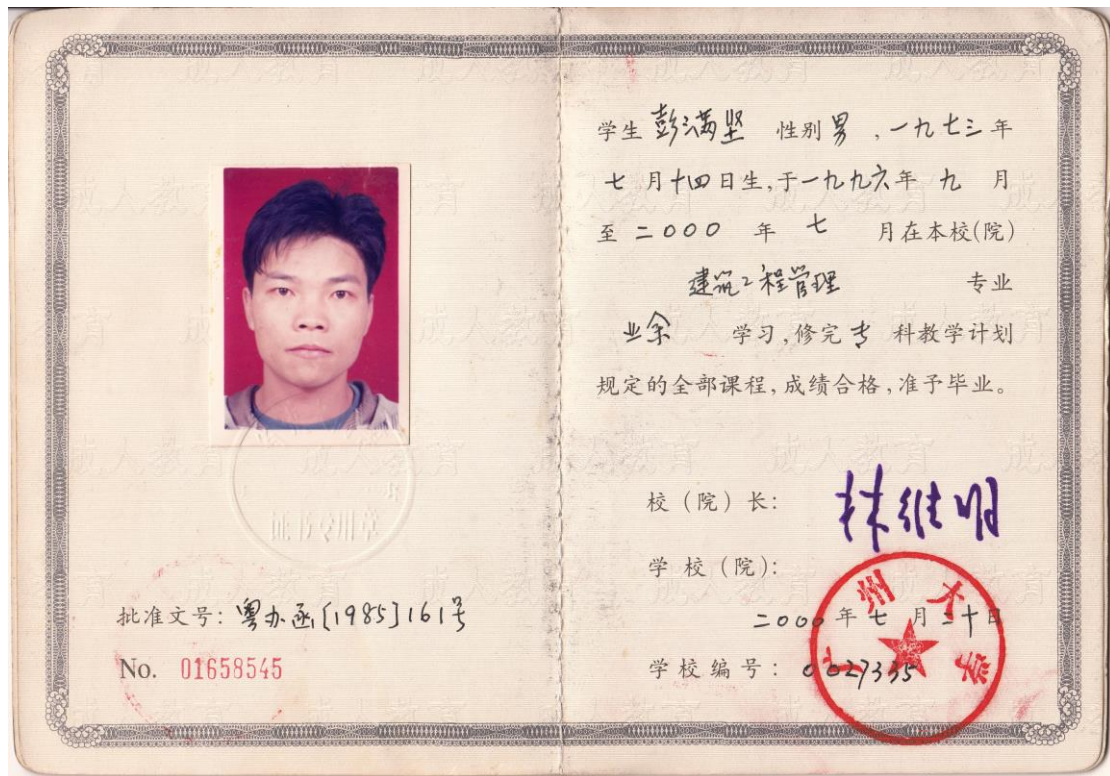 批准文号：粤办函〔1985〕161号
No. 01658545
学生 彭满坚 性别 男，一九七三年
七月十四日生，于一九九六年 九 月
至 二000 年 七 月在本校(院)
建筑工程管理 专业
业余 学习，修完 专 科教学计划
规定的全部课程，成绩合格，准予毕业。
校（院）长：林维明
学 校（院）：
二000年七月二十日
学校编号：0027335
广州大学
证书专用章
成人教育